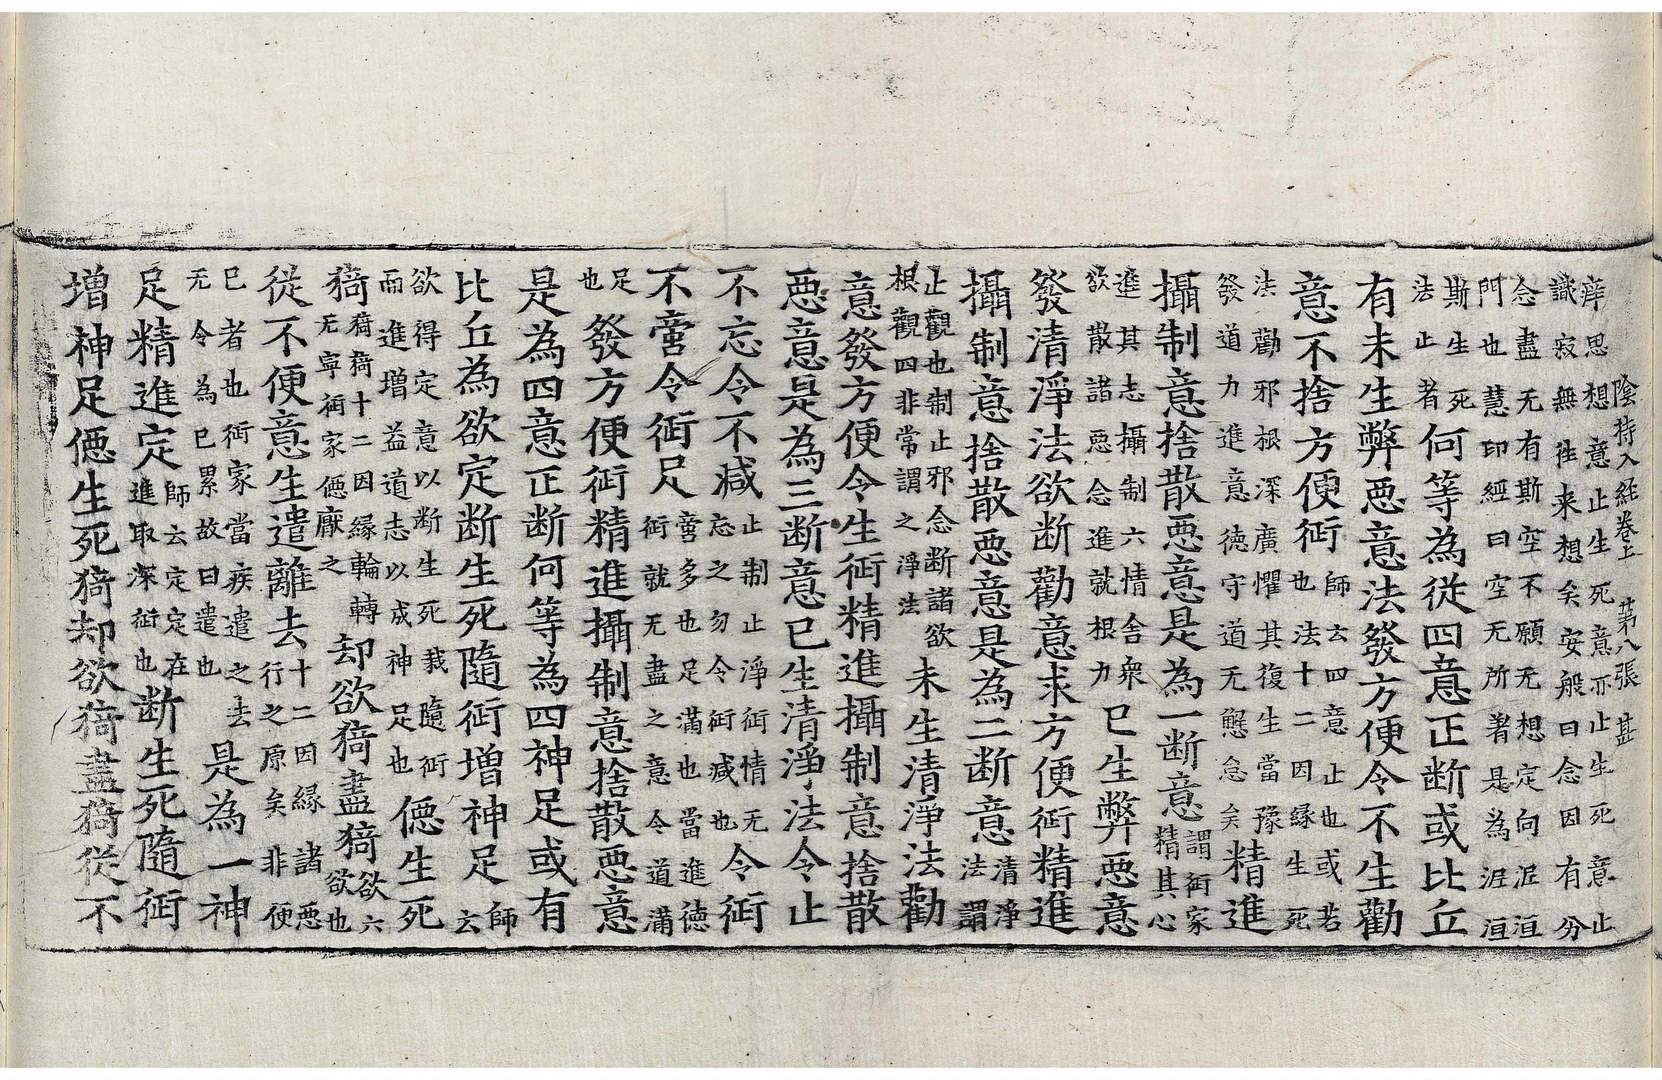 陰持入經卷上 第八張 甚
痺思想意止生死意亦止生死意止
識寂無往来想矣安般曰念因有分
念盡无有斯空不願无想定向泥洹
門也慧印經曰空无所著是為泥洹
斯生死
法止者
何等為從四意正断或比丘
有未生弊惡意法發方便令不生勸
意不捨方便行
師云四意止也或若
也法十二因緣生死
法勸邪根深廣懼其復生當豫
發道力進意德守道无懈怠矣
精進
攝制意捨散惡意是為一断意
謂行家
精其心
進其志攝制六情舍衆
欲散諸惡念進就根力
已生弊惡意
發清淨法欲断勸意求方便行精進
攝制意捨散惡意是為二断意
清淨
法謂
止觀也制止邪念断諸欲
根觀四非常謂之淨法
未生清淨法勸
意發方便令生行精進攝制意捨散
惡意是為三断意已生清淨法令止
不忘令不減
止制止淨行情无
忘之勿令行減也
令行
不啻令行足
啻多也足滿也當進德
行就无盡之意令道滿
足
也
發方便行精進攝制意捨散惡意
是為四意正断何等為四神足或有
比丘為欲定断生死隨行増神足
師
云
欲得定意以断生死栽隨行
而進增益道志以成神足也
僫生死
猗
猗猗十二因緣輪轉
无寧行家僫厭之
却欲猗盡猗
欲六
欲也
從不便意生遣離去
十二因緣諸惡
行之原矣非便
已者也行家當疾遣之去
无令為已累故曰遣也
是為一神
足精進定
師云定定在
進取深行也
断生死隨行
増神足僫生死猗却欲猗盡猗從不